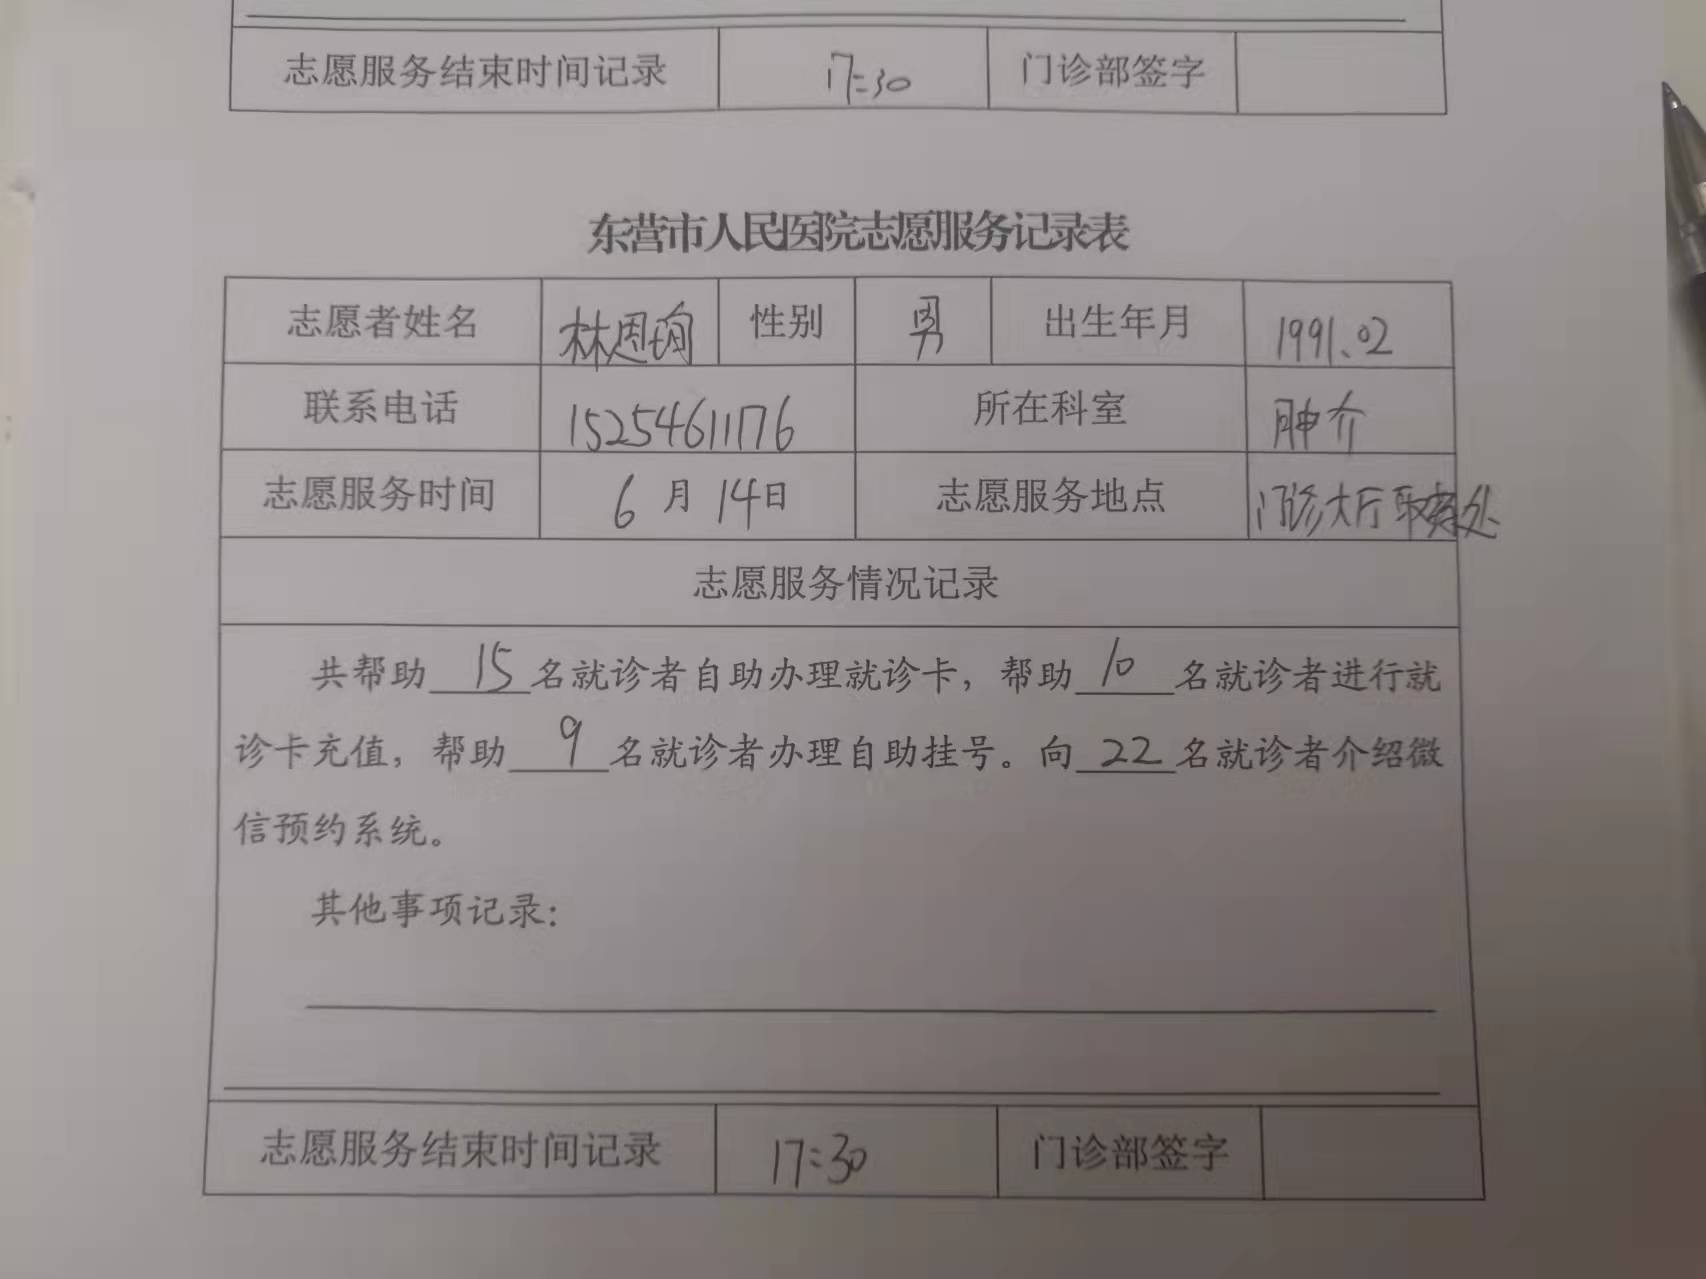 志愿服务结束时间记录 17:30 门诊部签字
东营市人民医院志愿服务记录表
志愿者姓名 林恩瑜 性别 男 出生年月 1991.02
联系电话 15254611176 所在科室 肿介
志愿服务时间 6月14日 志愿服务地点 门诊大厅取药处
志愿服务情况记录
共帮助15名就诊者自助办理就诊卡，帮助10名就诊者进行就
诊卡充值，帮助9名就诊者办理自助挂号。向22名就诊者介绍微
信预约系统。
其他事项记录：
志愿服务结束时间记录 17:30 门诊部签字